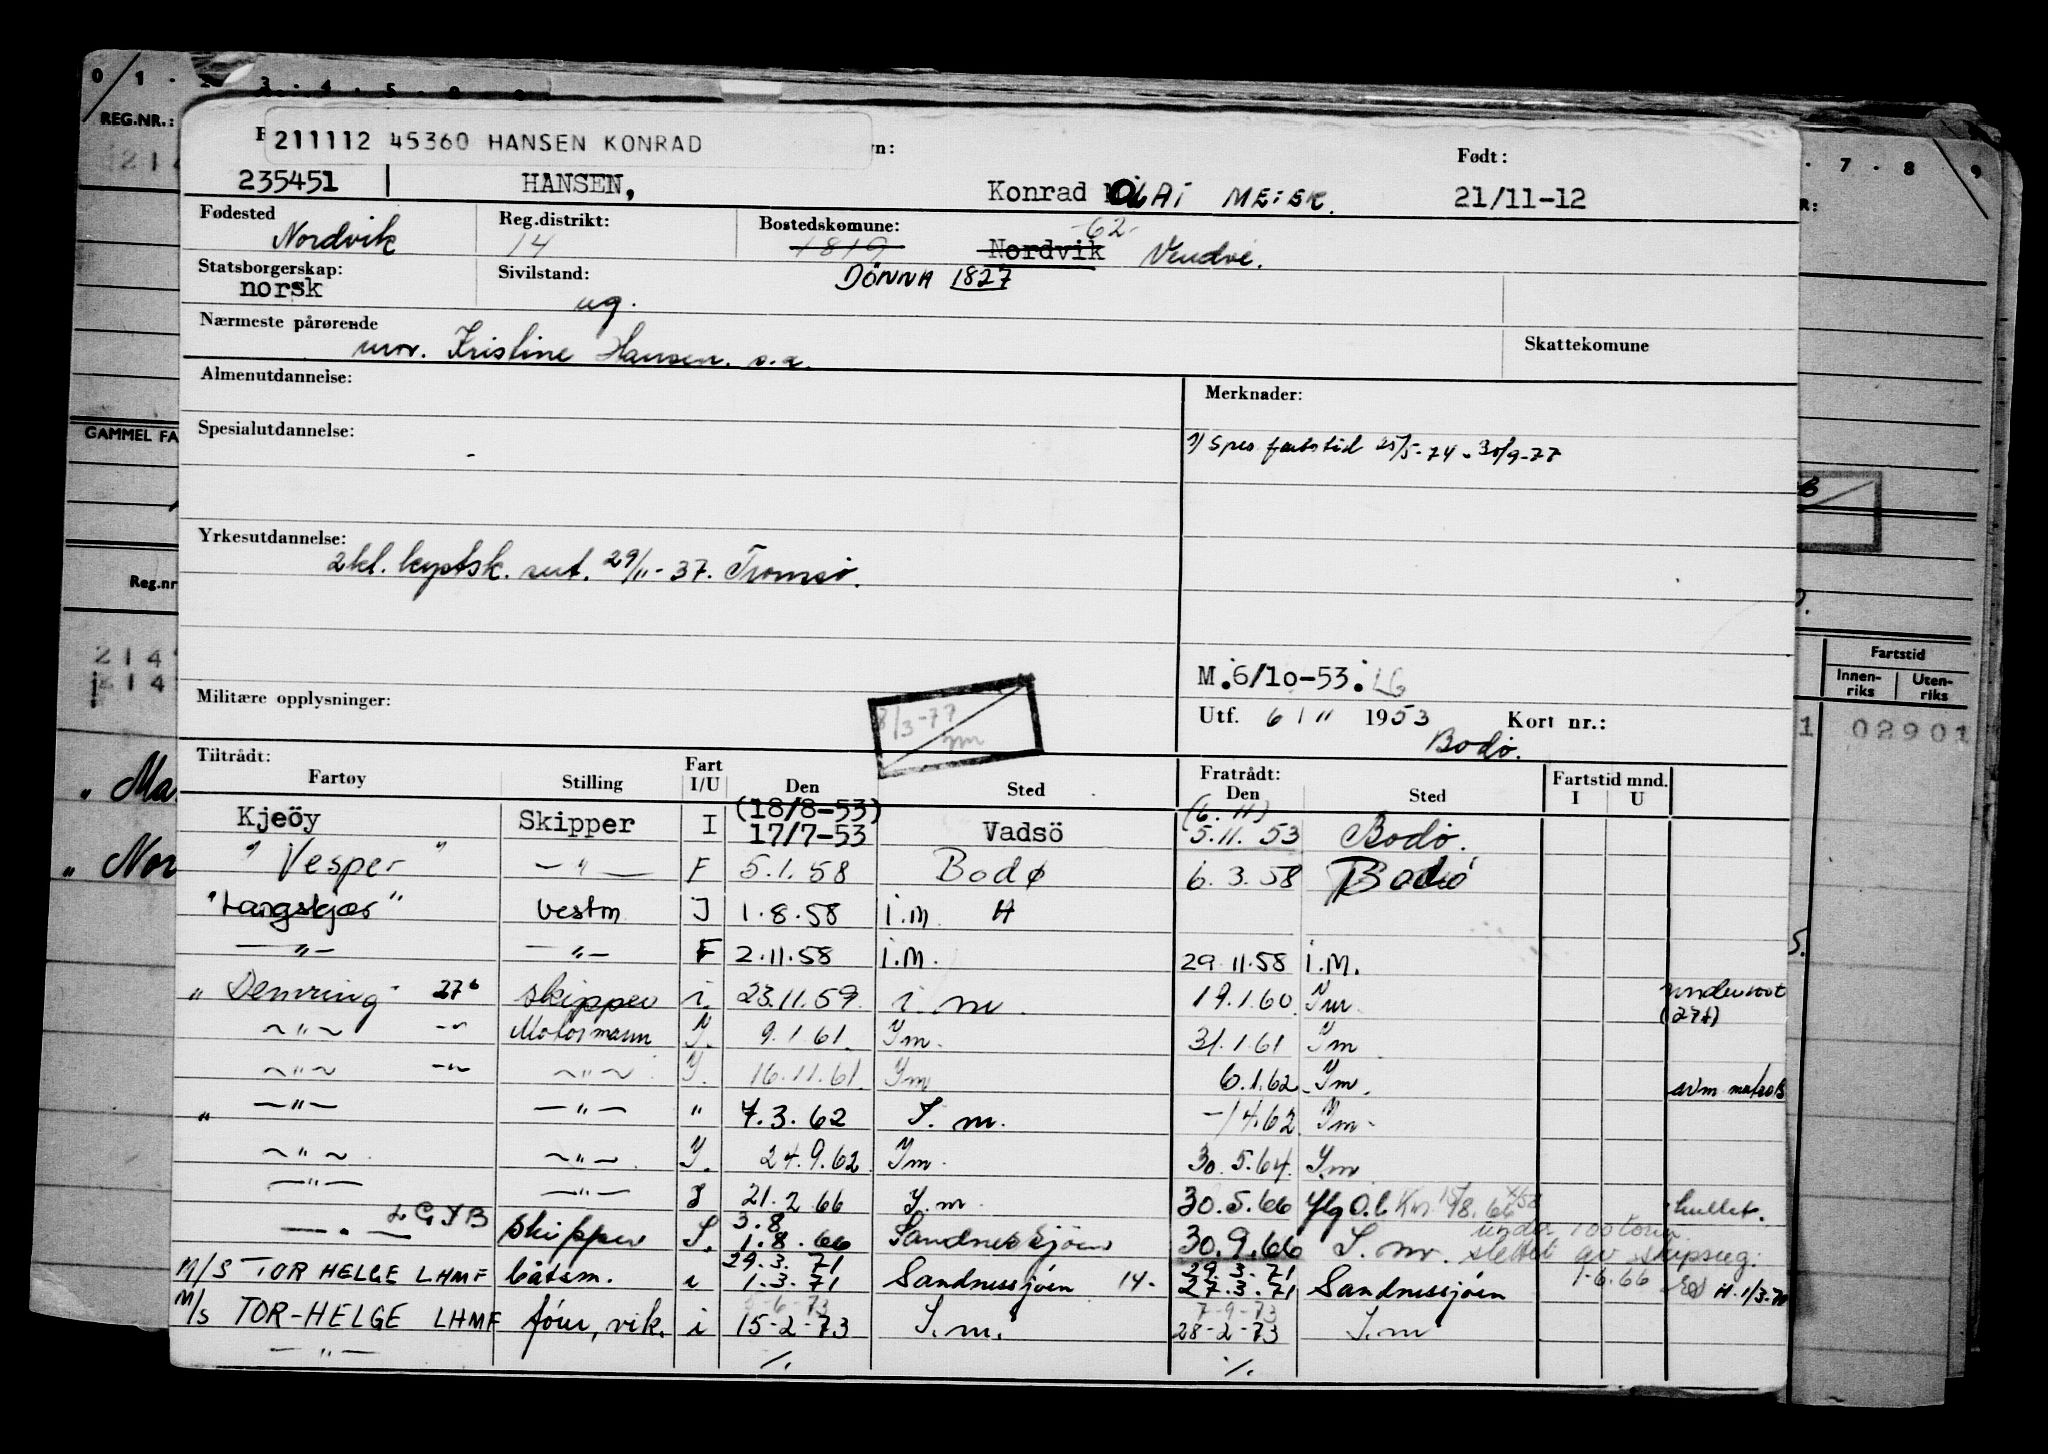 0 1 2 3 4 5
7 8 9
REG.NR.:
211112 45360 HANSEN KONRAD
Født:
235451 HANSEN, Konrad OLAI MEIER. 21/11-12
Fødested Reg.distrikt: Bostedskomune: -62-
Nordvik 14 1819 Nordvik
Statsborgerskap: Sivilstand: DÖNNA 1827
norsk ug.
Nærmeste pårørende Skattekomune
mor. Kristine Hansen. s.a.
Almenutdannelse: Merknader:
GAMMEL FA
Spesialutdannelse: 1) Spes fartstid 25/5-74 - 30/9-77
Yrkesutdannelse:
2kl. kystsk. sert. 29/11-37. Tromsø.
Reg.nr
M. 6/10-53. LG
Militære opplysninger: 8/3-77
Utf. 6/11 1953 Kort nr.:
Bodø.
Fartstid
Innen-riks Uten-riks
02901
Tiltrådt: Fratrådt: Fartstid mnd.
Fartøy Stilling Fart I/U Den Sted Den Sted I U
(18/8-53) (6.11)
Kjeöy Skipper I 17/7-53 Vadsö 5.11.53 Bodö.
"Vesper" —"— F 5.1.58 Bodø 6.3.58 Bodö
"Langskjær" Vestm J 1.8.58 i.m. H
—"— —"— F 2.11.58 i.m. 29.11.58 i.m.
"Demring" 27t skipper i. 23.11.59 i m. 19.1.60 Im. (27t)
—"— —"— Motormann Y. 9.1.61. Ym. 31.1.61 Ym
—"— —"— —"— Y. 16.11.61. Ym 6.1.62 Ym. som matros
" —"— —"— " 7.3.62 I.m. -14.62 Ym.
—"— —"— Y. 24.9.62. Ym. 30.5.64. Ym
—"— —"— I 21.2.66 I.m. 30.5.66 hullet.
3.8 under 100 tonn
—"— LGYB skipper I. 1.8.66 Sandnessjöen 30.9.66 I.m. slettet av skipsreg.
29.3.71 29.3.71 1-6.66
M/S TOR HELGE LHMF båtsm. i 1.3.71 Sandnessjöen 14- 27.3.71 Sandnessjöen
7-9-73
M/S TOR-HELGE LHMF förer, vik. i 15-2-73 I.m. 28-2-73 I.m
—"— ./. ./.